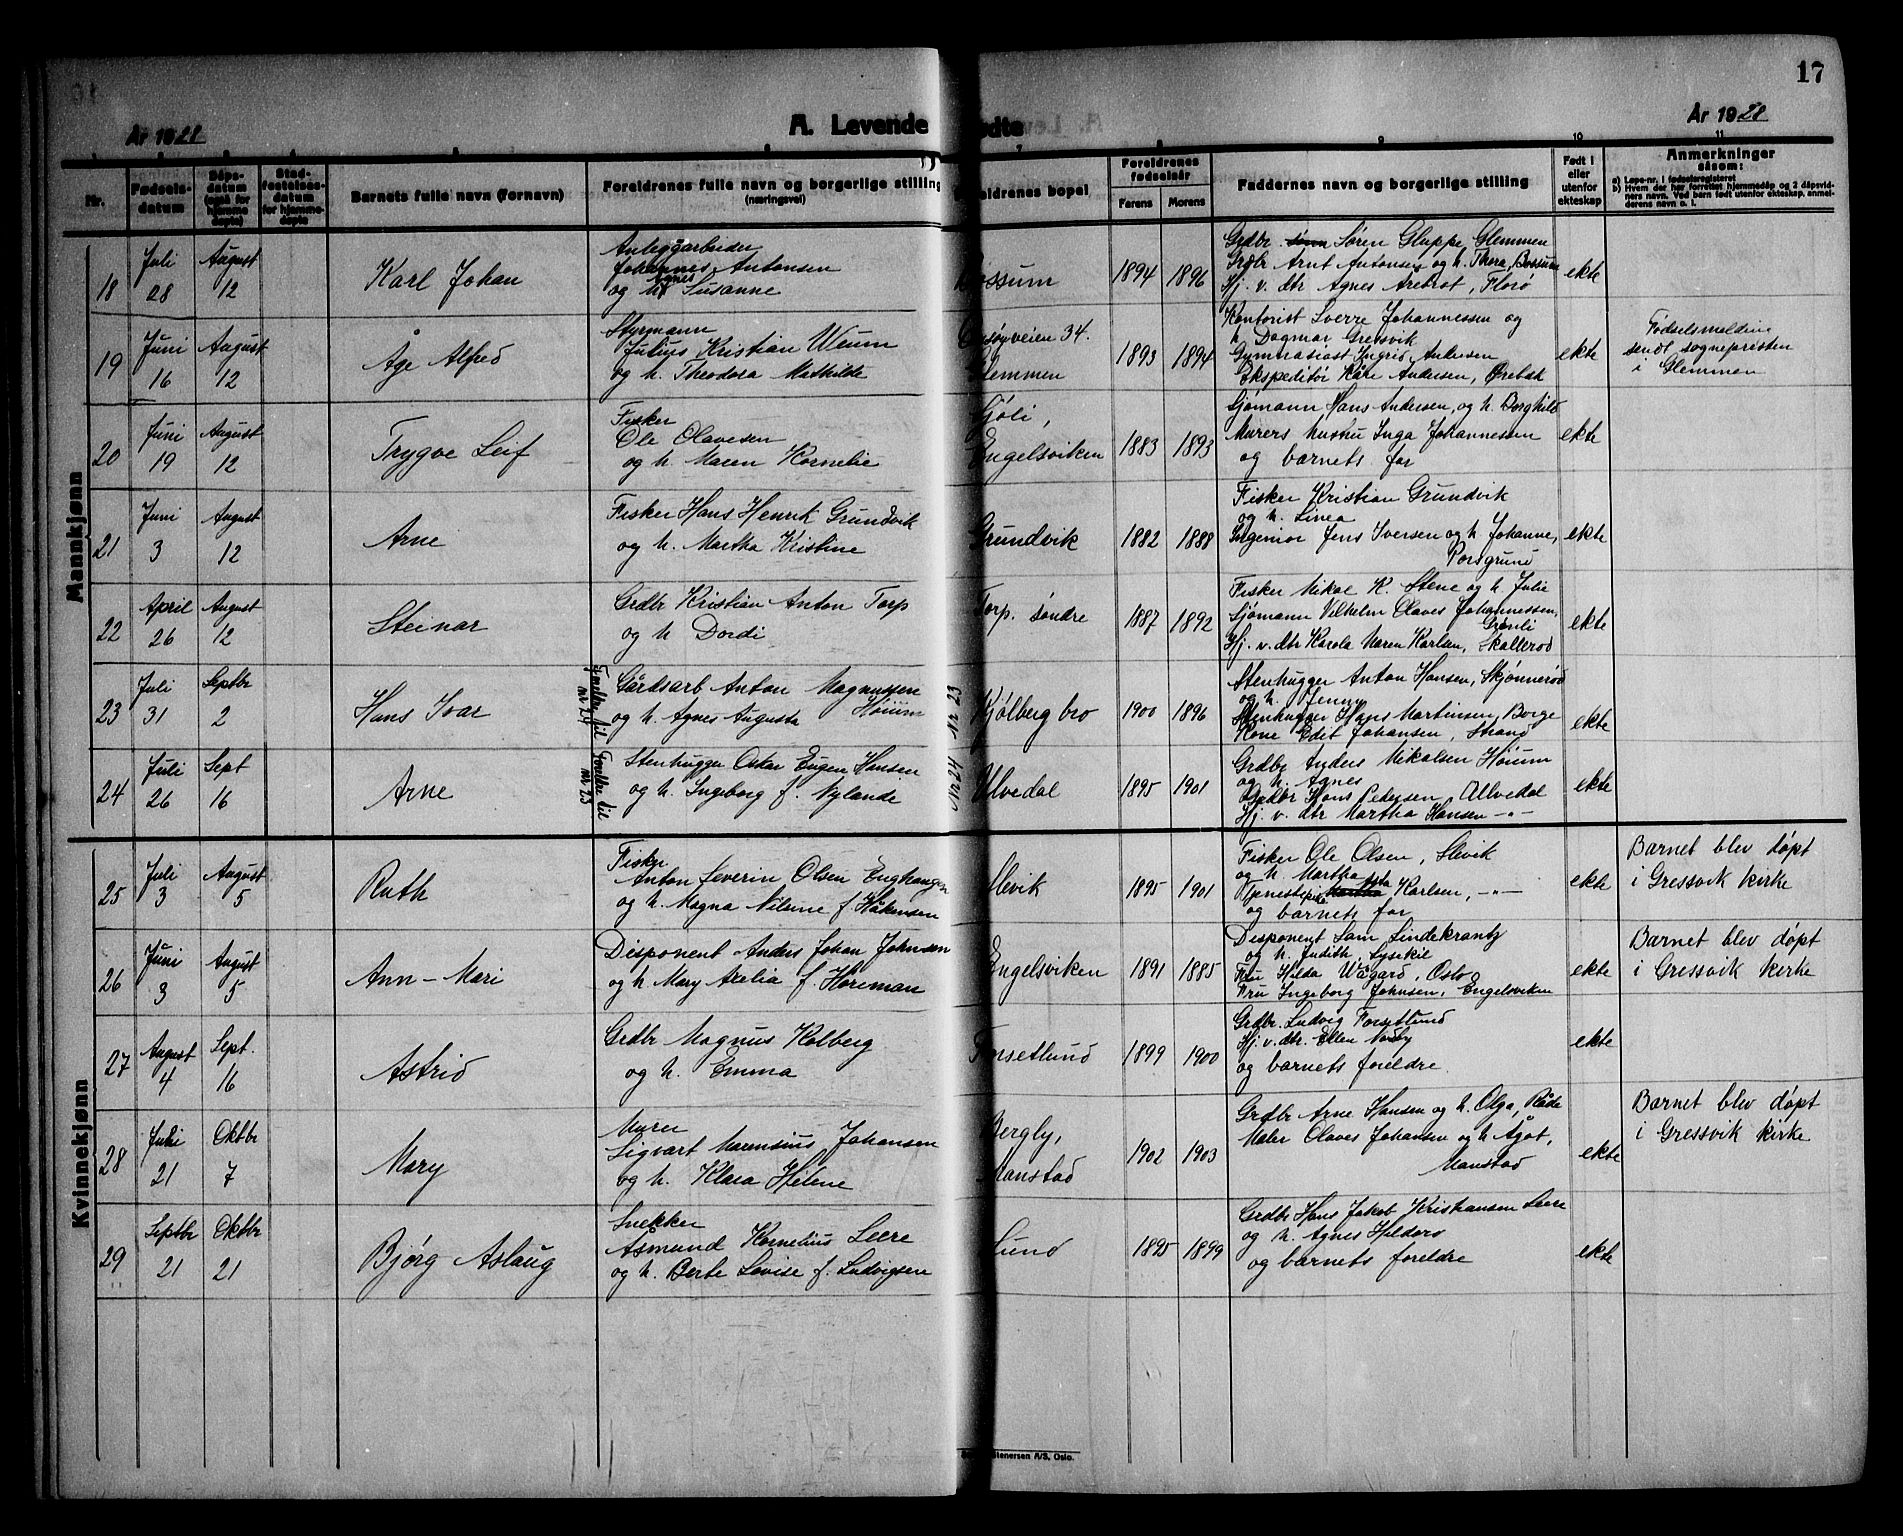 17
År 1928
A. Levende fødte
År 1928
Nr.
Fødsels-
datum
Dåps-
datum
(også for
hjemme
døpte)
Stad-
festelses-
datum
for hjemme-
døpte
Barnets fulle navn (fornavn)
Foreldrenes fulle navn og borgerlige stilling
(næringsvei)
eldrenes bopel
Foreldrenes
fødselsår
Farens
Morens
Faddernes navn og borgerlige stilling
Født i
eller
utenfor
ekteskap
Anmerkninger
såsom:
a) Løpe-nr. i fødselsregisteret
b) Hvem der har forrettet hjemmedåp og 2 dåpsvid-
ners navn. Ved barn født utenfor ekteskap, anmel-
derens navn o. l.
Mannkjønn
18
Juli
28
August
12
Karl Johan
Anleggarbeider
Johannes Antonsen
og h. Agnes Susanne
ossum
1894
1896
Grdbr. Søren Gluppe, Glemmen
Grdbr Arnt Antonsen og h. Thora, Bossum
Hj. v. dtr Agnes Arebrot, Florø
ekte
19
Juni
16
August
12
Åge Alfred
Styrmann
Julius Kristian Weum
og h. Theodora Mathilde
Onsøyveien 34.
Glemmen
1893
1894
Kontorist Sverre Johannessen og
h. Dagmar Gressvik
Gymnasiast Ingrid Andersen
Ekspeditør Kåre Andersen, Ørebæk
ekte
Fødselsmelding
sendt sognepresten
i Glemmen
20
Juni
19
August
12
Trygve Leif
Fisker
Ole Olavesen
og h. Maren Kornelie
Engelsviken
1883
1893
Sjømann Hans Andersen, og h. Borghild
Murers hustru Inga Johannessen
og barnets far
ekte
21
Juni
3
August
12
Arne
Fisker Hans Henrik Grundvik
og h. Martha Kristine
Grundvik
1882
1888
Fisker Kristian Grundvik
og h. Linea
Ingeniør Jens Iversen og h Johanne,
Porsgrund
ekte
22
April
26
August
12
Steinar
Grdbr Kristian Anton Torp
og h Dordi
Torp. søndre
1887
1892
Fisker Mikal K. Stene og h Julie
Sjømann Vilhelm Olaves Johannessen,
Grønli
Hj. v. dtr Karola Maren Karlsen, Skallerød
ekte
23
Juli
31
Septbr
2
Hans Ivar
Foreldre til
nr 24
Gårdsarb Anton Magnussen
og h. Agnes Augusta Høium
Nr 23
Kjølberg bro
1900
1896
Stenhugger Anton Hansen, Skjønnerød
og h. Jenny
Stenhugger Hans Martinsen, Borge
Kone Edit Johansen, Strand
ekte
24
Juli
26
Sept
16
Arne
Foreldre til
nr 23
Stenhugger Oskar Eugen Hansen
og h. Ingeborg f. Nylande
Nr 24
Ulvedal
1895
1901
Grdbr Anders Mikalsen Høium
og h. Agnes
Grdbr Hans Pedersen, Allvedal
Hj. v. dtr Martha Hansen -"-
ekte
Kvinnekjønn
25
Juli
3
August
5
Ruth
Fisker
Anton Severin Olsen Enghaugen
og h. Magna Nilsine f. Håkensen
Slevik
1895
1901
Fisker Ole Olsen, Slevik
og h. Martha
Karlsen, -"-
og barnets far
ekte
Barnet blev døpt
i Gressvik kirke
26
Juni
3
August
5
Ann-Mari
Disponent Anders Johan Johnsen
og h Mary Arelia f. Horeman
Engelsviken
1891
1885
Disponent Sam Lindekrantz
og h. Judith, Lysekil
Fru Hilda Wågard, Oslo
Fru Ingeborg Johnsen, Engelsviken
ekte
Barnet blev døpt
i Gressvik kirke
27
August
4
Sept.
16
Astrid
Grdbr Magnus Kolberg
og h. Emma
Forsetlund
1899
1900
Grdbr. Ludvig Forsetlund
Hj. v. dtr. Ellen Nordby
og barnets foreldre.
ekte
28
Juli
21
Oktbr
7
Mary
Murer
Sigvart Marensius Johansen
og h. Klara Helene
Bergly,
Manstad
1902
1903
Grdbr Arne Hansen og h. Olga, Råde
Maler Olaves Johansen og h Ågot,
Manstad
ekte
Barnet blev døpt
i Gressvik kirke
29
Septbr
21
Oktbr
21
Bjørg Aslaug
Snekker
Asmund Kornelius Leere
og h. Berte Lovise f. Ludvigsen
Lund
1895
1899
Grdbr Hans Jakob Kristiansen Leere
og h. Agnes Hildero
og barnets foreldre
ekte
tenersen A/S, Oslo.